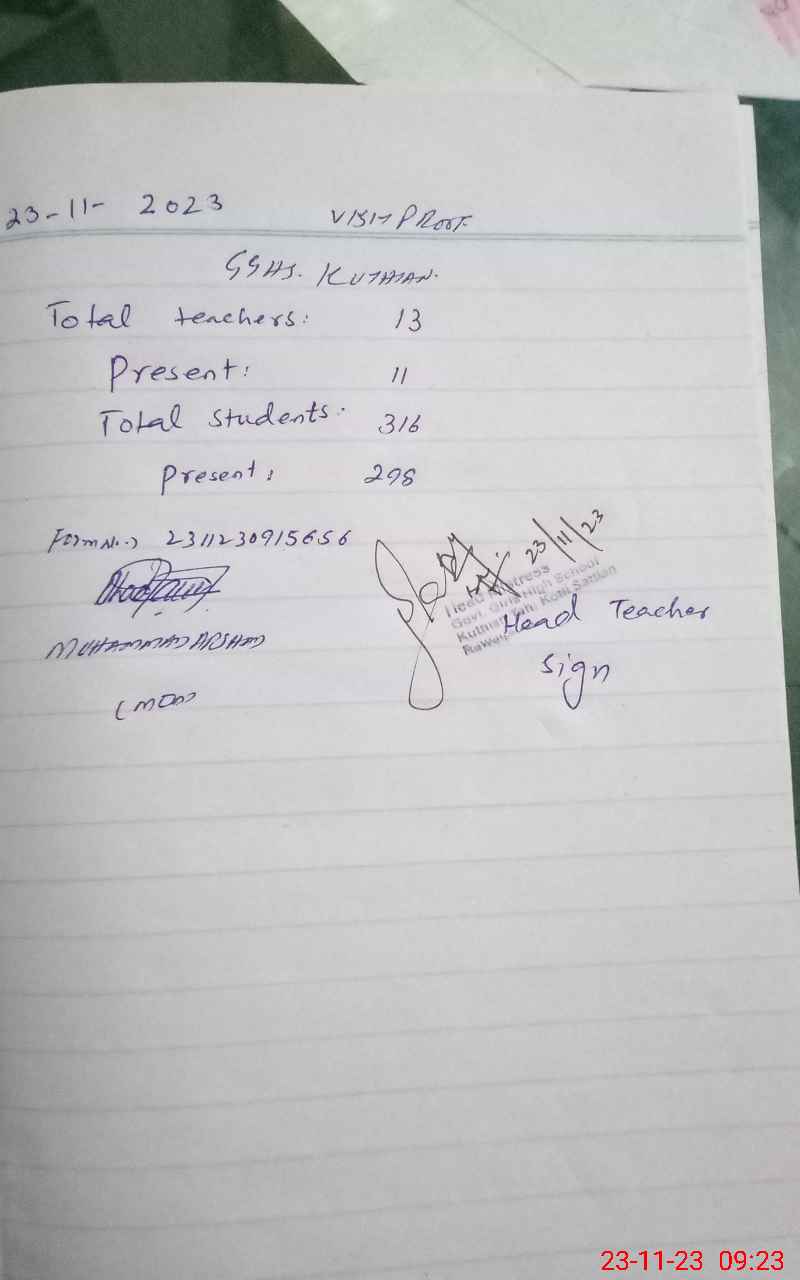 23-11- 2023 VISIT PROOF
GGHS. KUTHIAN.
Total teachers: 13
Present: 11
Total Students: 316
Present: 298
Form No.-> 2311230915656
MUHAMMAD ARSHAD
23/11/23
Head Mistress
Govt. Girls High School
Kuthian Teh. Kotli Sattian
Head Teacher
Sign
23-11-23 09:23